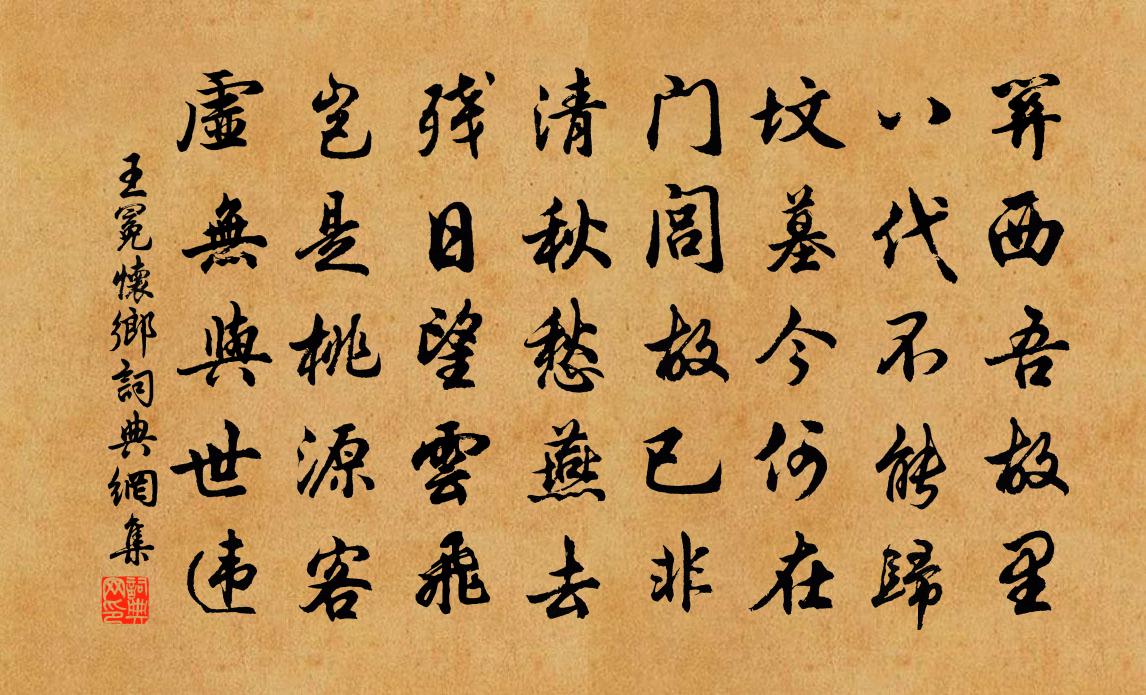 関西吾故里
八代不能歸
坟墓今何在
门闾故已非
清秋愁燕去
残日望雲飛
岂是桃源客
虛無與世违
王冕懷鄉詞典網集
詞典网印